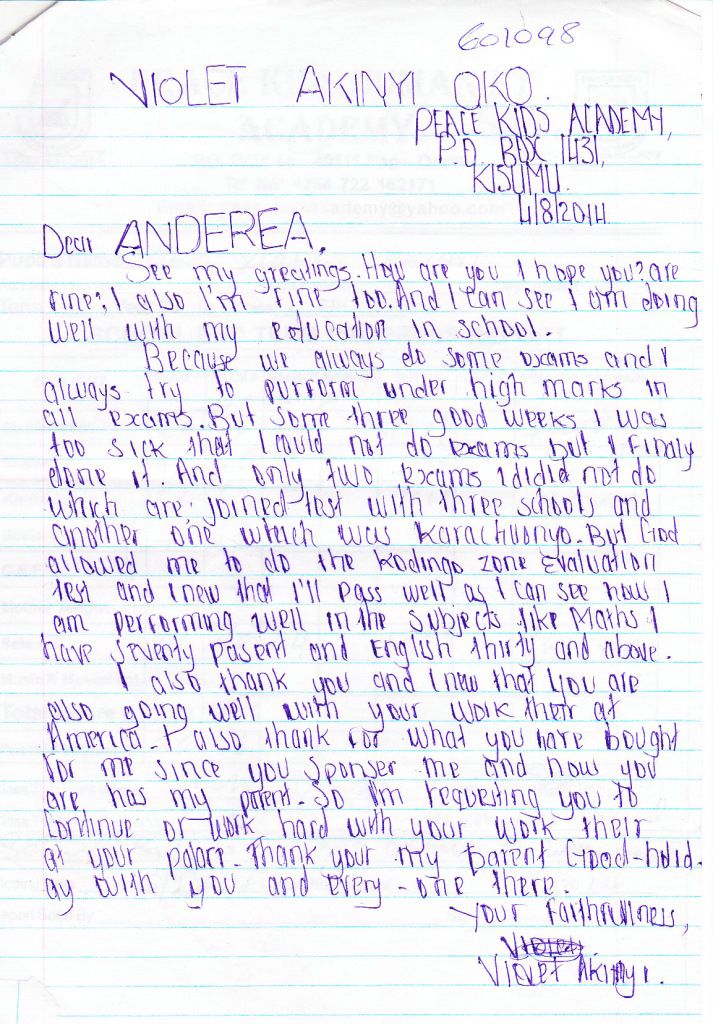 601098
VIOLET AKINYI OKO.
PEACE KIDS ACADEMY,
P.O. BOX 1431,
KISUMU.
4/8/2014
Dear ANDEREA,
See my greatings. How are you I hope you? are
fine; I also I'm fine too. And I can see I am doing
well with my education in school.
Because we always do some exams and I
always try to purform under high marks in
all exams. But some three good weeks I was
too sick that I could not do exams but I finaly
done it. And only two exams I didid not do
which are; joined test with three schools and
another one which was Karachuonyo. But God
allowed me to do the Kodingo zone Evaluation
test and I new that I'll pass well as I can see how I
am performing well in the subjects like Maths I
have seventy pasent and English thirty and above.
I also thank you and I new that you are
also going well with your work their at
America. I also thank for what you have bought
for me since you sponser me and now you
are has my parent. So I'm requesting you to
continue or work hard with your work their
at your palace. Thank your my parent Good-holid-
ay with you and every-one there.
Your faithfullness,
Violet Akinyi.